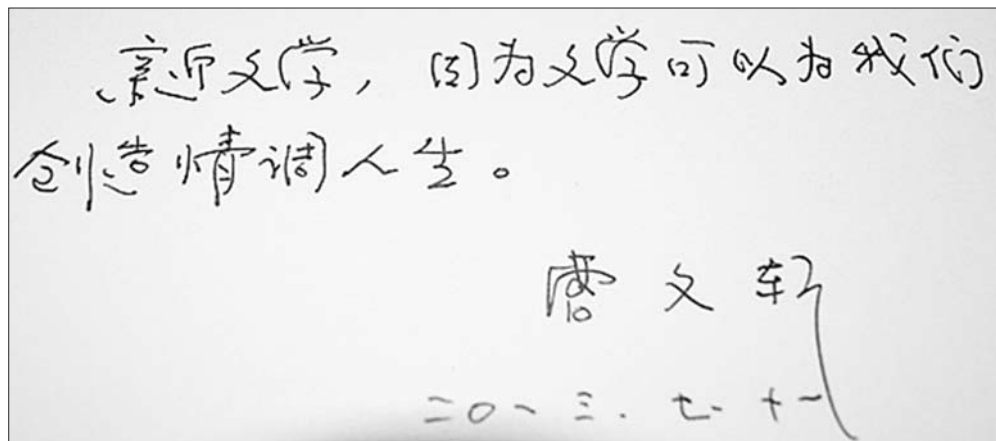 亲近文学,因为文学可以为我们
创造情调人生。
曹文轩
二〇一三.七.十一